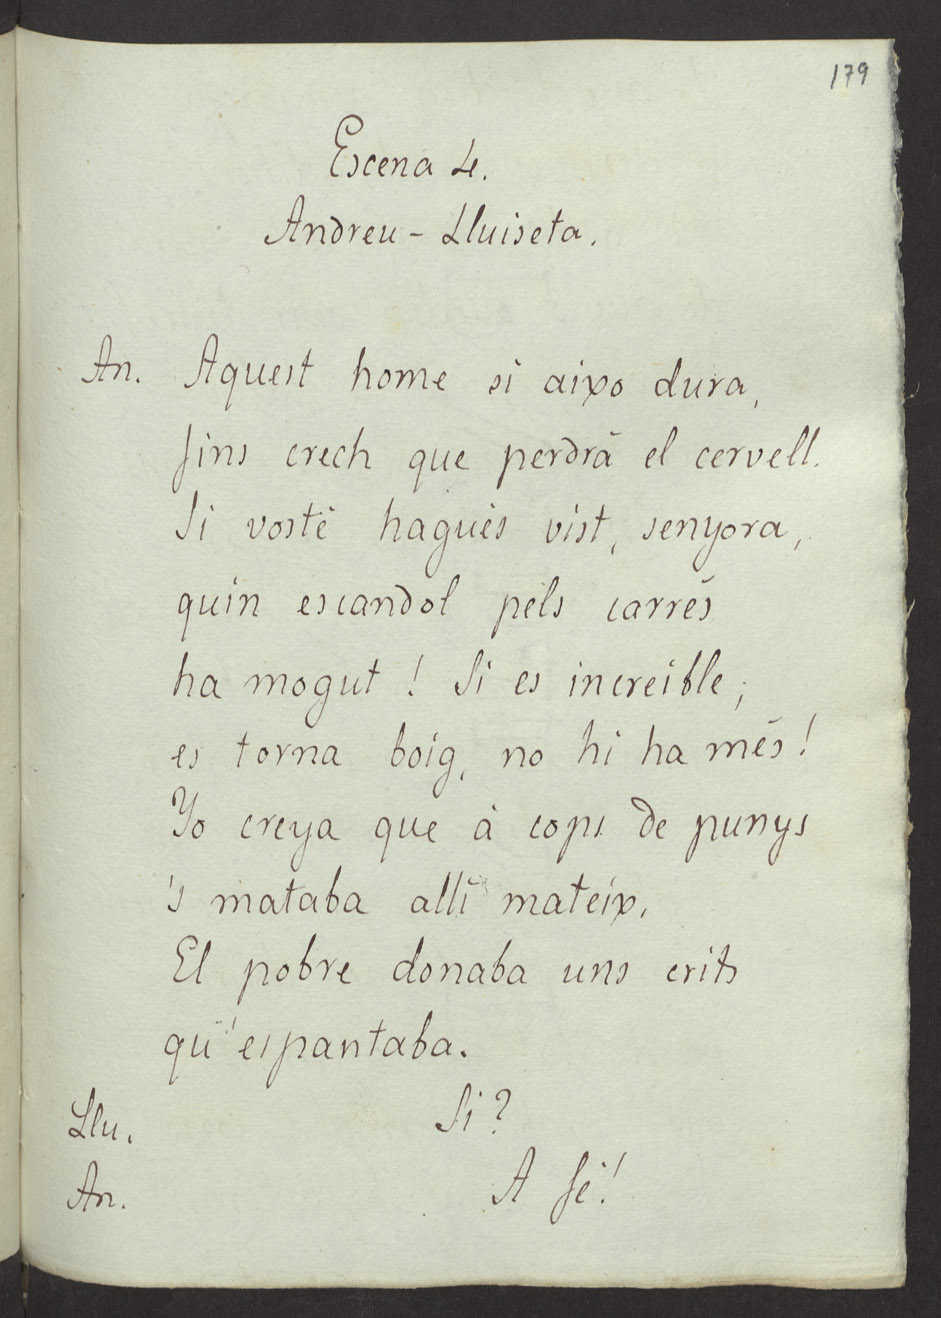 179
Escena 4.
Andreu - Lluiseta.
An. Aquest home si aixo dura,
fins crech que perdrá el cervell.
Si vosté hagués vist, senyora,
quin escandol pels carrés
ha mogut! Si es increible;
es torna boig, no hi ha més!
Yo creya que à cops de punys
's mataba allí mateix.
El pobre donaba uns crits
qu' espantaba.
Llu. Si?
An. A fé!